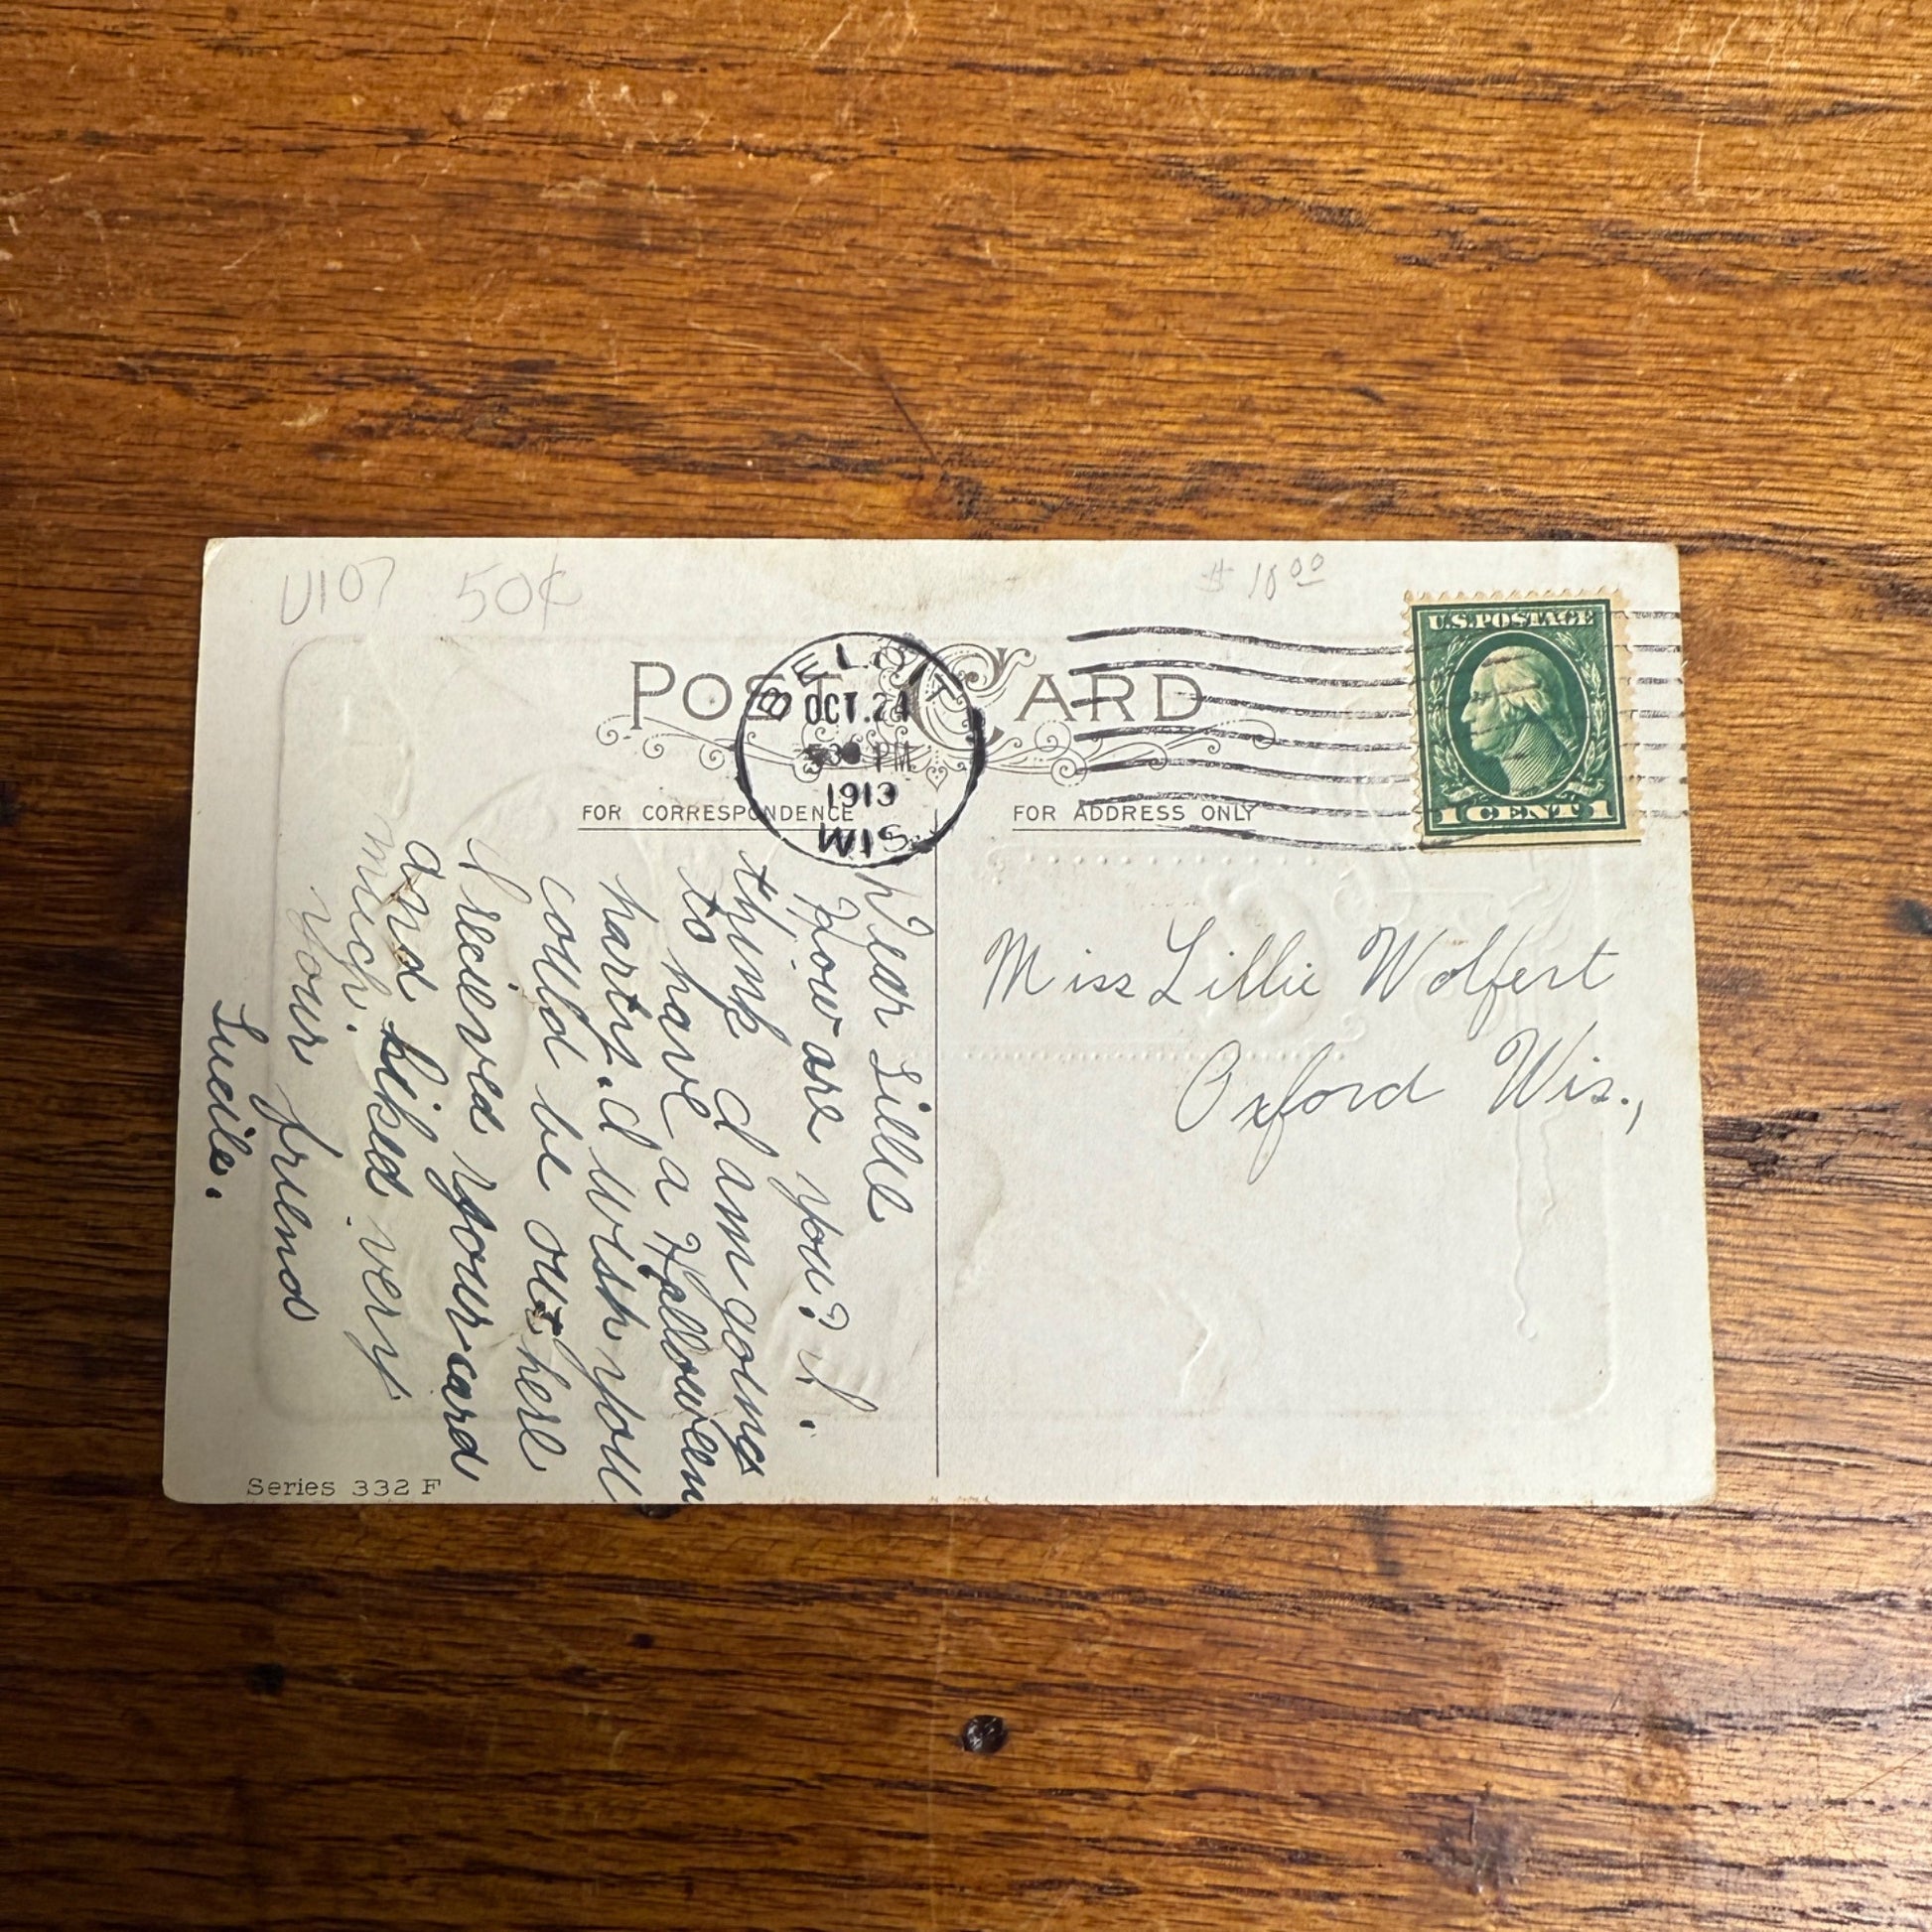 U107 50¢
POST CARD
BELOIT
OCT. 24
530 PM
1913
WIS.
U.S. POSTAGE
1 CENT 1
FOR CORRESPONDENCE
FOR ADDRESS ONLY
Dear Lillie
How are you? I
think I am going
to have a Halloween
party. I wish you
could be out here
I recieved your card
and liked very
much.
Your friend
Lucile.
Miss Lillie Wolfert
Oxford Wis.,
Series 332 F